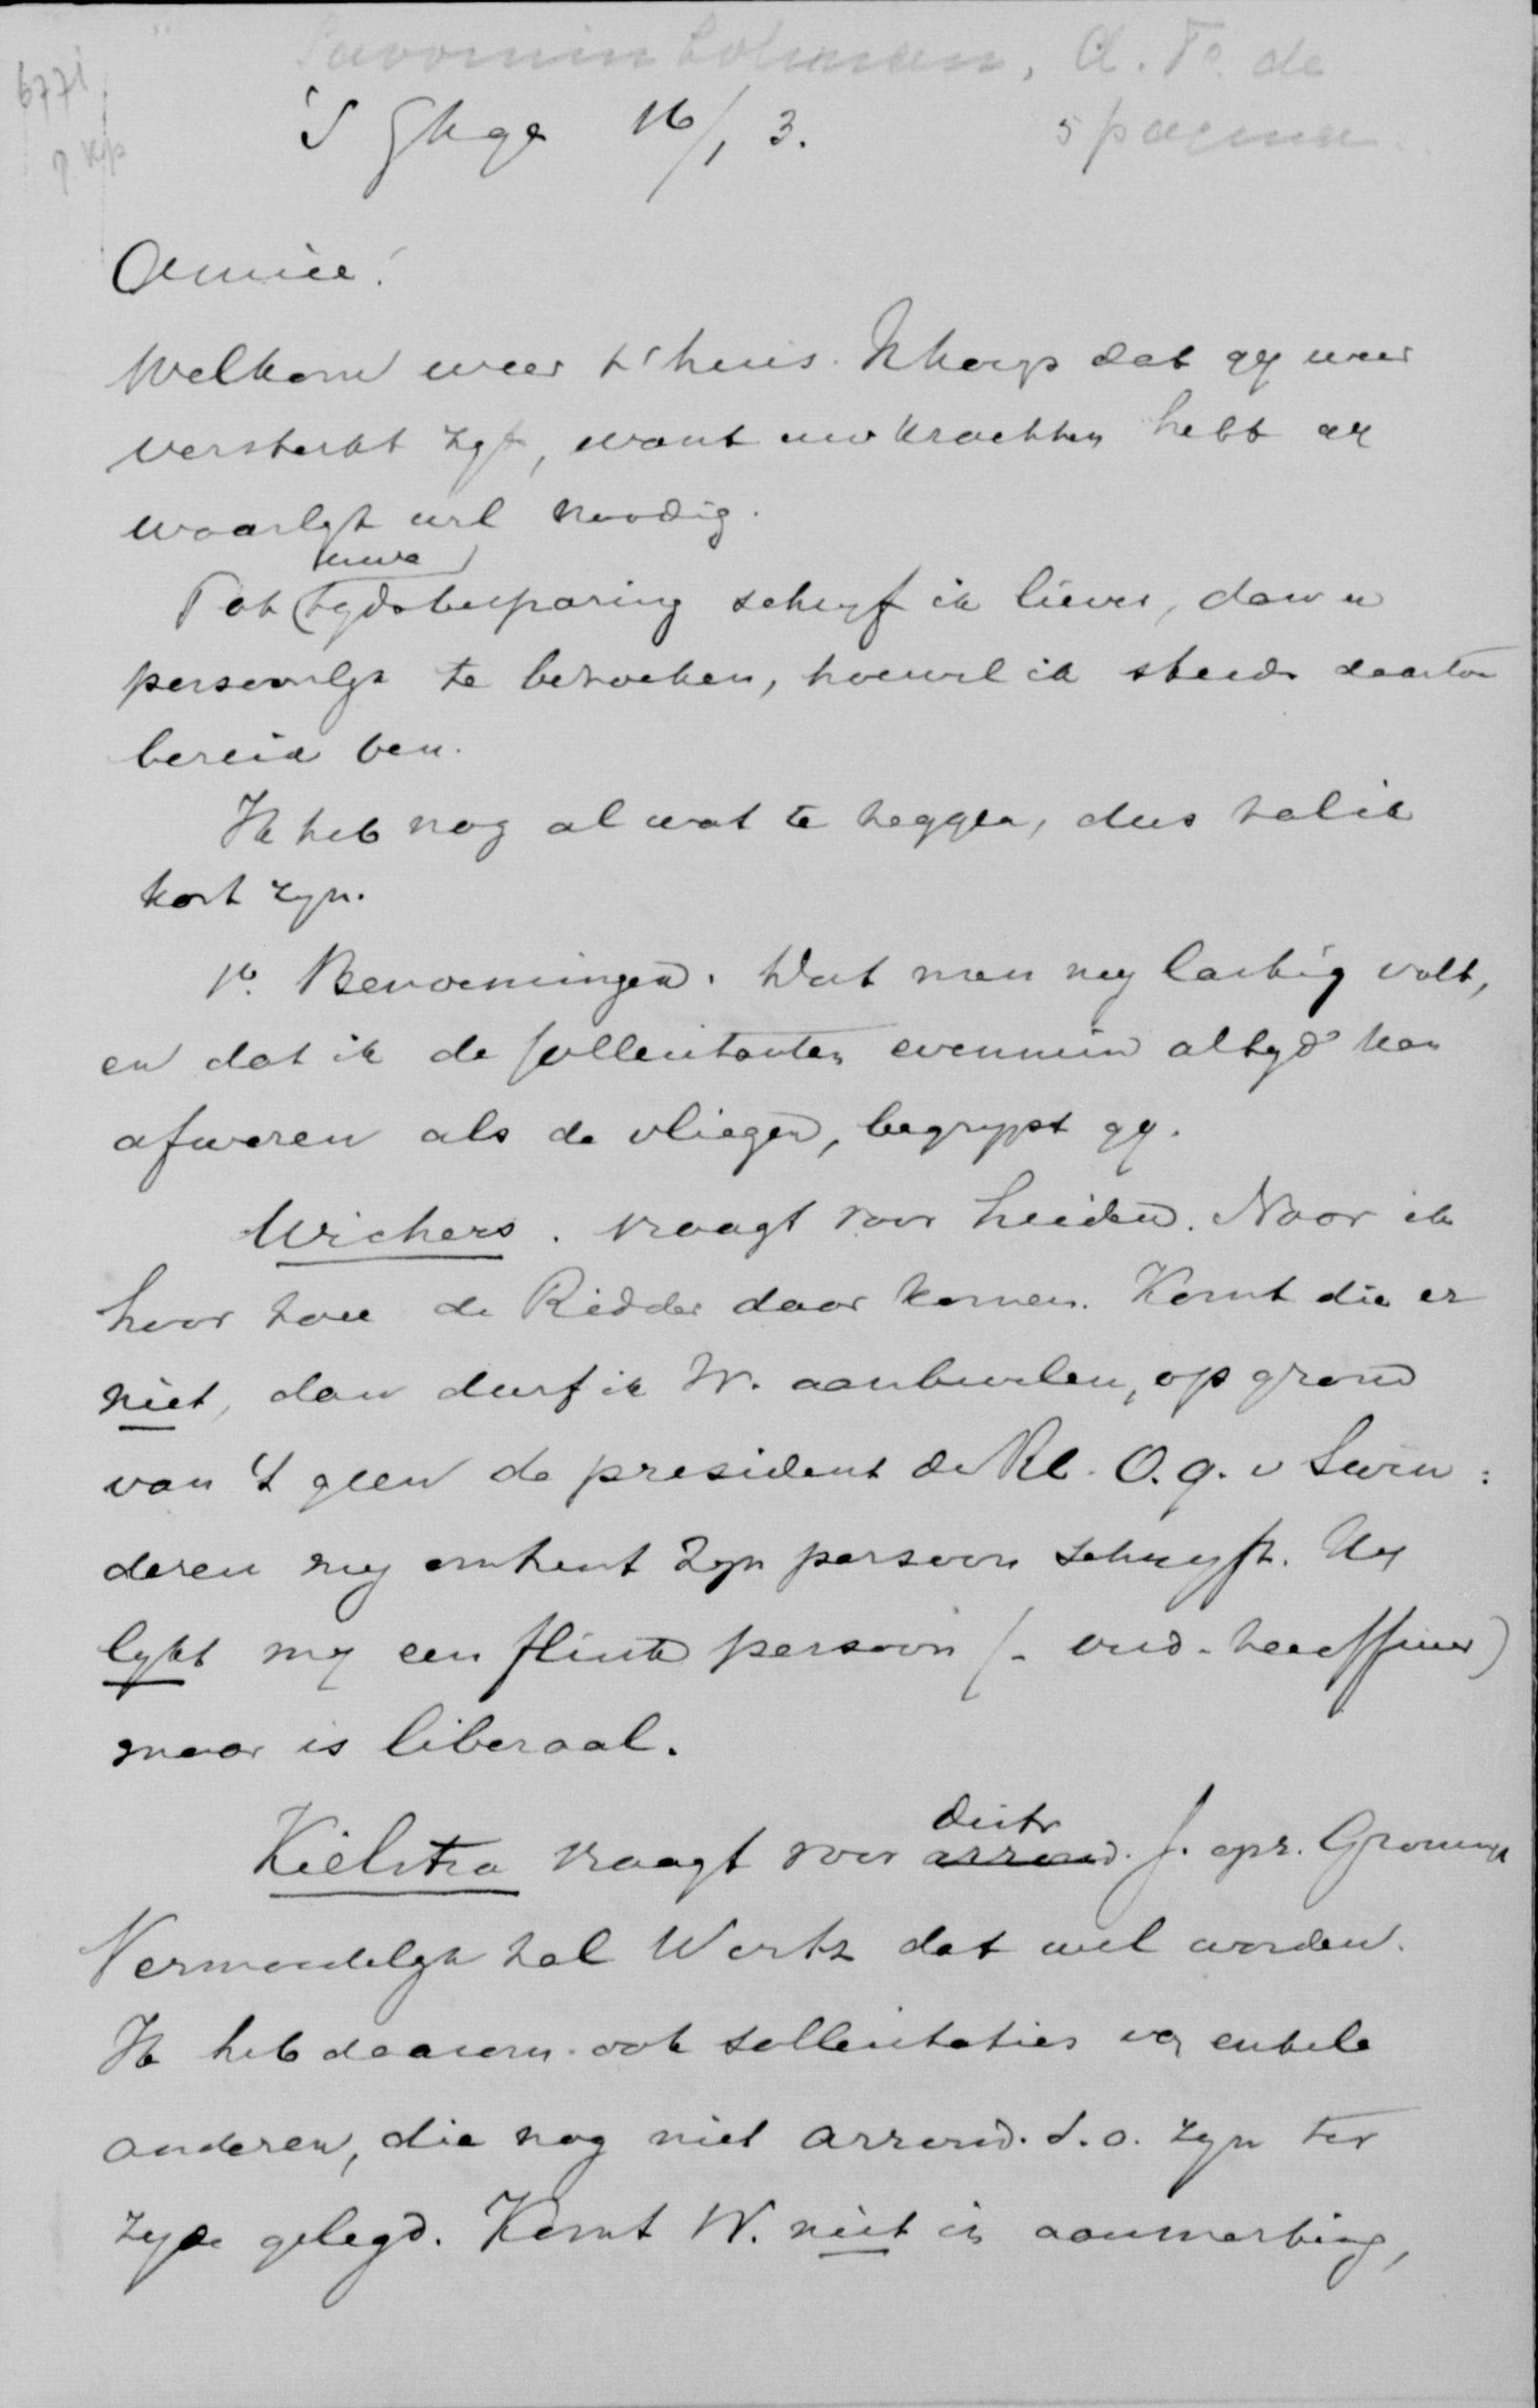 Savornin Lohman, A. F. de
6771
'S Ghage 16/1 3.
5 pagina
Amice!
Welkom weer t'huis. Ik hoop dat gij weer
versterkt zijt, want uw krachten hebt gij
waarlijk wel noodig.
uwe
Tot tijdsbesparing schrijf ik liever, dan u
persoonlijk te bezoeken, hoewel ik steeds daartoe
bereid ben.
Ik heb nog al wat te zeggen, dus zal ik
kort zijn.
1o. Benoemingen. Dat men mij lastig valt,
en dat ik de sollicitanten evenmin altijd kan
afweren als de vliegen, begrijpt gij.
Wichers. vraagt voor Leiden. Naar ik
hoor zou de Ridder daar komen. Komt die er
niet, dan durf ik W. aanbevelen, op grond
van 't geen de president de Rb. O. q. v Swin:
deren mij omtrent zijn persoon schrijft. Hij
lijkt mij een flink persoon (- oud-zeeofficier)
maar is liberaal.
distr
Kielstra vraagt voor arrond. s. opz. Groningen
Vermoedelijk zal Wertz dat wel worden.
Ik heb daarom ook sollicitaties van enkele
anderen, die nog niet arrond. s. o. zijn ter
zijde gelegd. Komt W. niet in aanmerking,